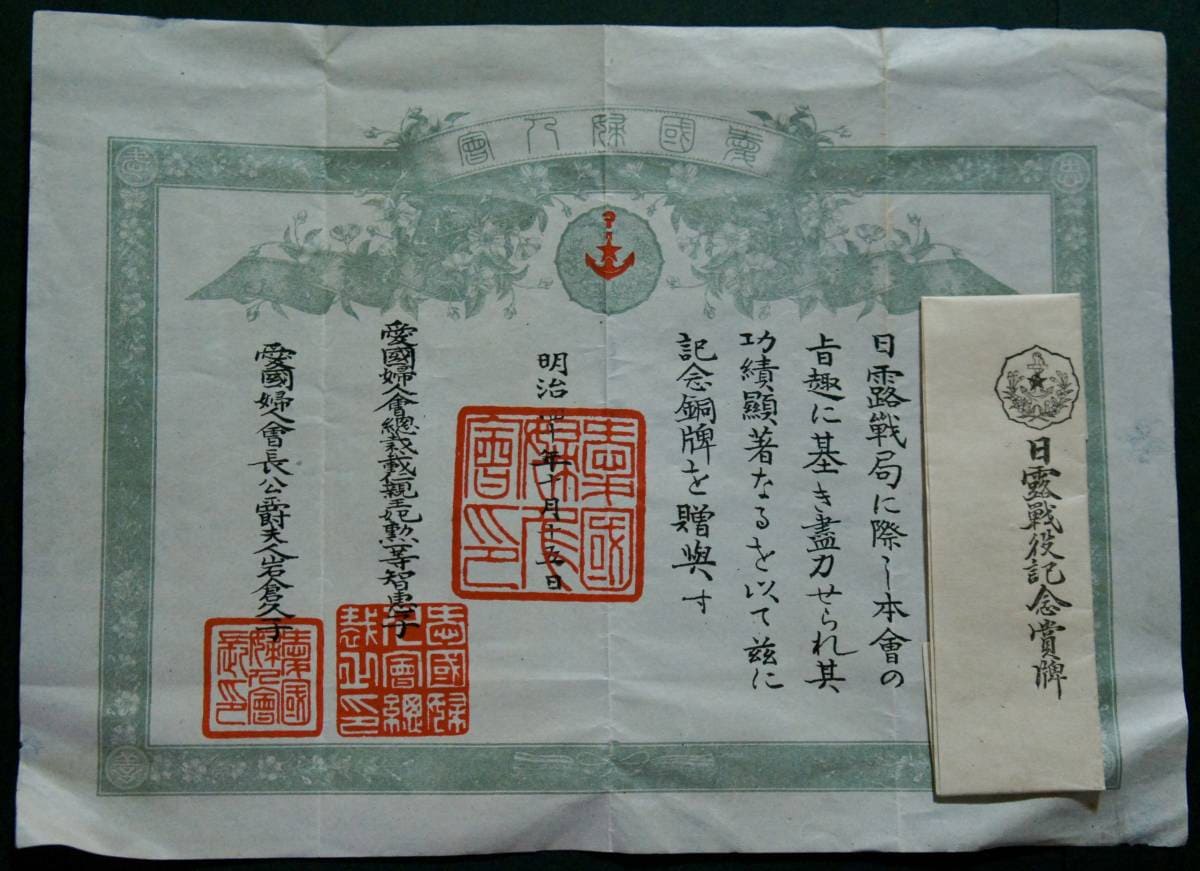 愛國婦人會
日露戰局に際し本會の
旨趣に基き盡力せられ其
功績顯著なるを以て茲に
記念銅牌を贈與す
明治四十年十月十五日
愛國婦人會印
愛國婦人會總裁載仁親王妃勲一等智惠子
愛國婦人會總裁之印
愛國婦人會長公爵夫人岩倉久子
愛國婦人會長印
日露戰役記念賞牌